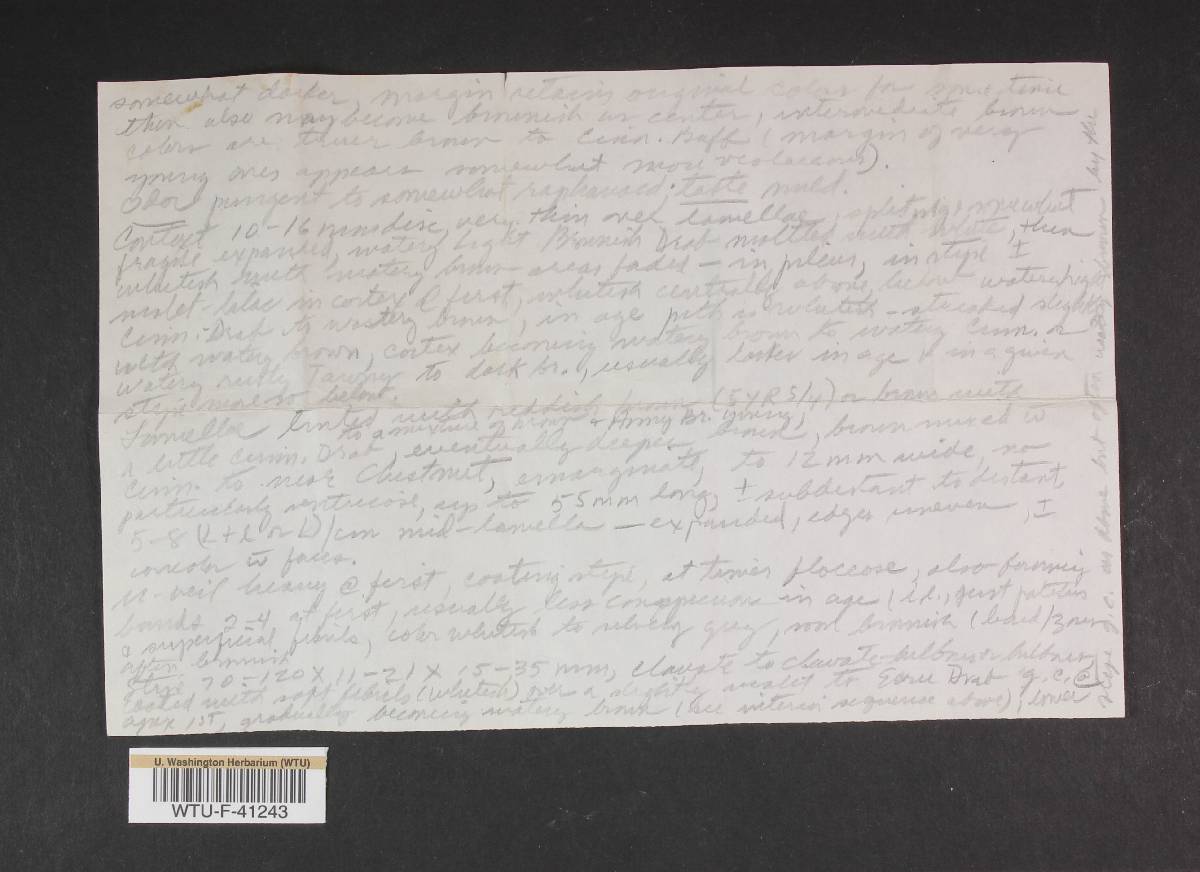 somewhat darker, margin retains original color for some time
then also may become brownish as center, intermediate brown
colors are: truer brown to Cinn. Buff (margin of very
young ones appears somewhat more violaceous).
Odor pungent to somewhat raphanaceous; taste mild.
Context 10-16 mm disc, very thin over lamellae, splitting, somewhat
fragile expanded, watery Light Brownish Drab mottled with white, then
whitish with watery brown areas faded - in pileus, in stipe ±
violet-lilac in cortex @ first, whitish centrally above, below watery light
Cinn.-Drab to watery brown, in age pith is whitish - streaked slightly
with watery brown, cortex becoming watery brown to watery Cinn. or
watery rusty Tawny to dark br., usually later in age & in a given
stipe more so below.
Lamellae tinted with reddish brown (5YR 5/4) or brown with
to a mixture of brown & Army Br. young,
a little Cinn. Drab, eventually deeper brown, brown mixed w
Cinn. to near Chestnut, emarginate, to 12 mm wide, no
particularly ventricose, up to 55 mm long, ± subdistant to distant,
5-8 (L+l or L)/cm mid-lamella - expanded, edges uneven, ±
concolor w faces.
U-veil heavy @ first, coating stipe, at times floccose, also forming
bands 2-4 at first, usually less conspicuous in age (i.e., just patches
& superficial fibrils, color whitish to silvery gray, soon brownish (band/zones
often brownish
Stipe 70-120 X 11-21 X 15-35 mm, clavate to clavate-bulbous or bulbous,
coated with soft fibrils (whitish) over a slightly violet to Ecru Drab g.c. @
apex 1st, gradually becoming watery brown (see interior sequence above), lower
stipe g.c. as above but often
by the
U. Washington Herbarium (WTU)
WTU-F-41243